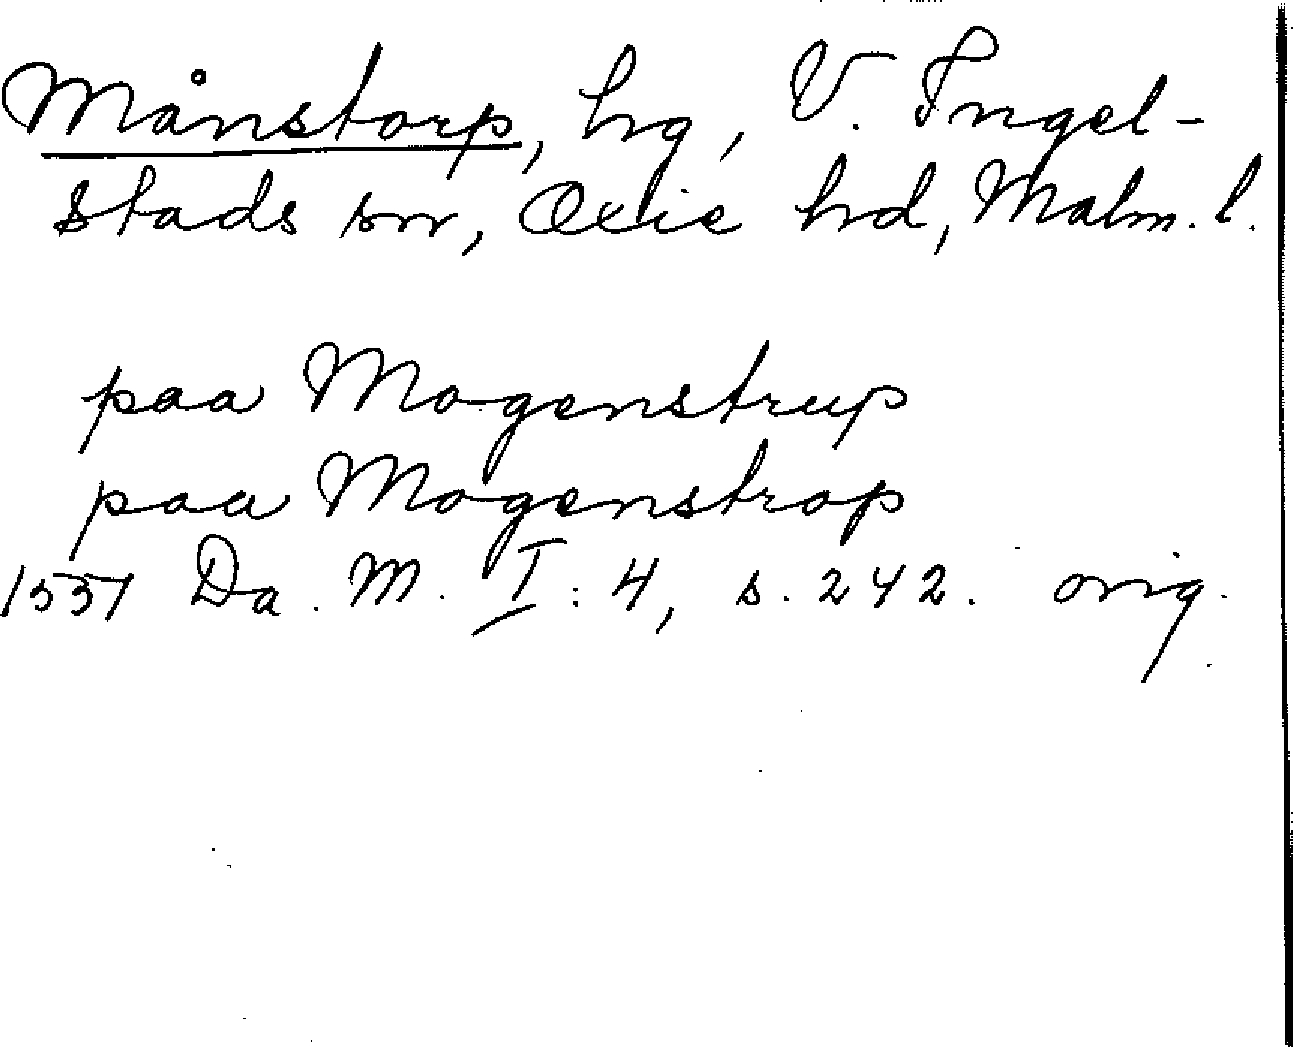 Månstorp, hg, V. Ingel-
stads sn, Oxie hd, Malm. l.
paa Mogenstrup
paa Mogenstrop
1537 Da. M. I: 4, s. 242. orig.